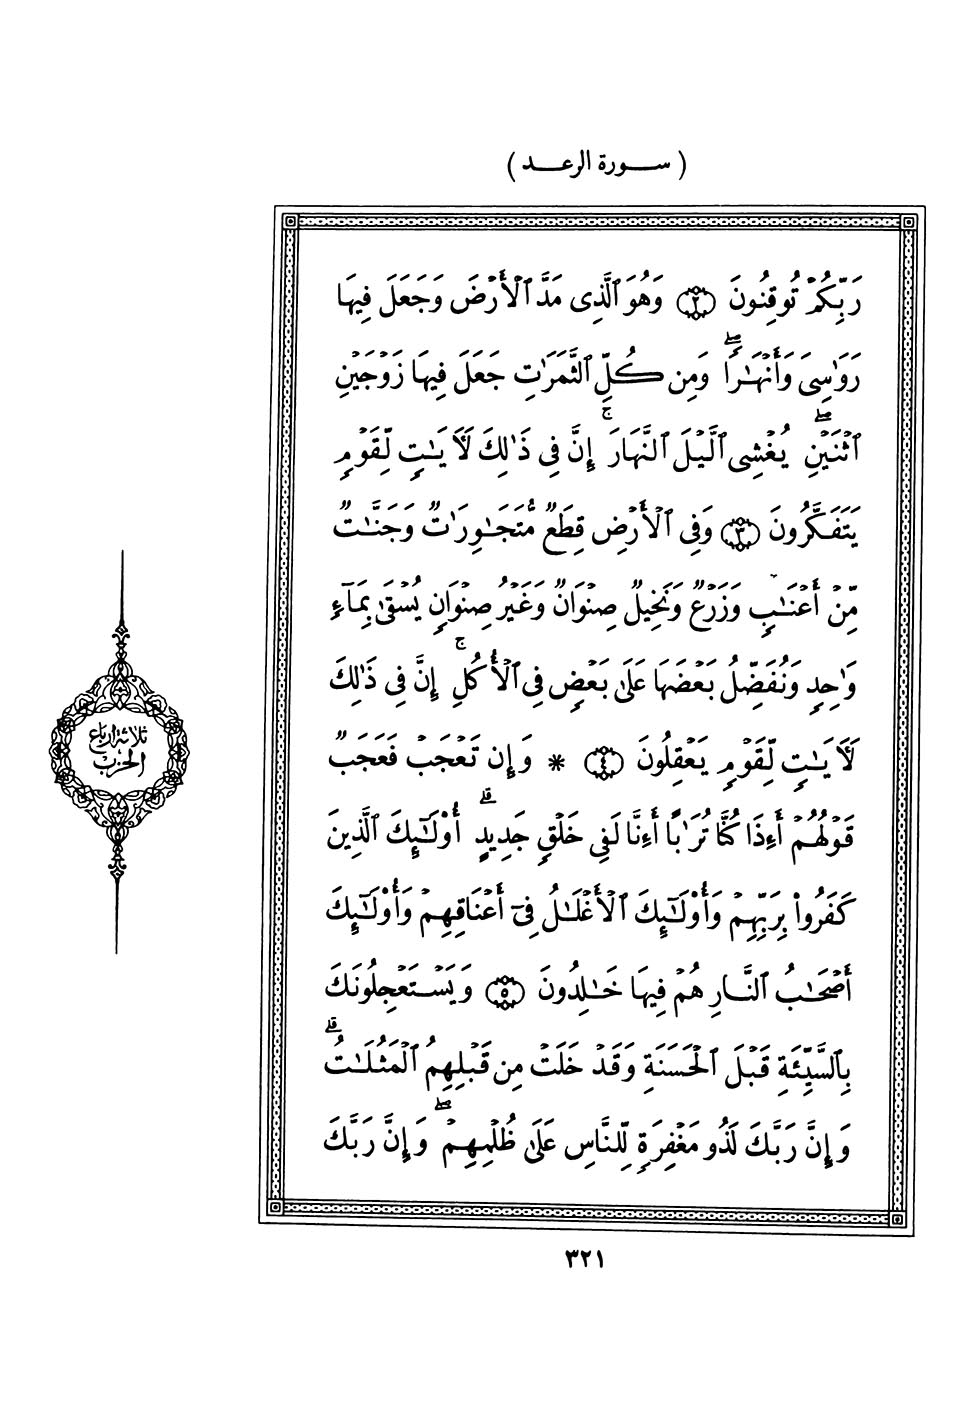 ( سـورة الرعـد )
رَبِّكُمْ تُوقِنُونَ ﴿٢﴾ وَهُوَ ٱلَّذِى مَدَّ ٱلْأَرْضَ وَجَعَلَ فِيهَا
رَوَٰسِىَ وَأَنْهَـٰرًا ۖ وَمِن كُلِّ ٱلثَّمَرَٰتِ جَعَلَ فِيهَا زَوْجَيْنِ
ٱثْنَيْنِ ۖ يُغْشِى ٱلَّيْلَ ٱلنَّهَارَ ۚ إِنَّ فِى ذَٰلِكَ لَـَٔايَـٰتٍ لِّقَوْمٍ
يَتَفَكَّرُونَ ﴿٣﴾ وَفِى ٱلْأَرْضِ قِطَعٌ مُّتَجَـٰوِرَٰتٌ وَجَنَّـٰتٌ
مِّنْ أَعْنَـٰبٍ وَزَرْعٌ وَنَخِيلٌ صِنْوَانٌ وَغَيْرُ صِنْوَانٍ يُسْقَىٰ بِمَآءٍ
وَٰحِدٍ وَنُفَضِّلُ بَعْضَهَا عَلَىٰ بَعْضٍ فِى ٱلْأُكُلِ ۚ إِنَّ فِى ذَٰلِكَ
لَـَٔايَـٰتٍ لِّقَوْمٍ يَعْقِلُونَ ﴿٤﴾ * وَإِن تَعْجَبْ فَعَجَبٌ
قَوْلُهُمْ أَءِذَا كُنَّا تُرَٰبًا أَءِنَّا لَفِى خَلْقٍ جَدِيدٍ ۗ أُوْلَـٰٓئِكَ ٱلَّذِينَ
كَفَرُوا۟ بِرَبِّهِمْ وَأُوْلَـٰٓئِكَ ٱلْأَغْلَـٰلُ فِىٓ أَعْنَاقِهِمْ وَأُوْلَـٰٓئِكَ
أَصْحَـٰبُ ٱلنَّارِ هُمْ فِيهَا خَـٰلِدُونَ ﴿٥﴾ وَيَسْتَعْجِلُونَكَ
بِٱلسَّيِّئَةِ قَبْلَ ٱلْحَسَنَةِ وَقَدْ خَلَتْ مِن قَبْلِهِمُ ٱلْمَثُلَـٰتُ ۗ
وَإِنَّ رَبَّكَ لَذُو مَغْفِرَةٍ لِّلنَّاسِ عَلَىٰ ظُلْمِهِمْ ۖ وَإِنَّ رَبَّكَ
٣٢١
ثلاثة أرباع
الحزب